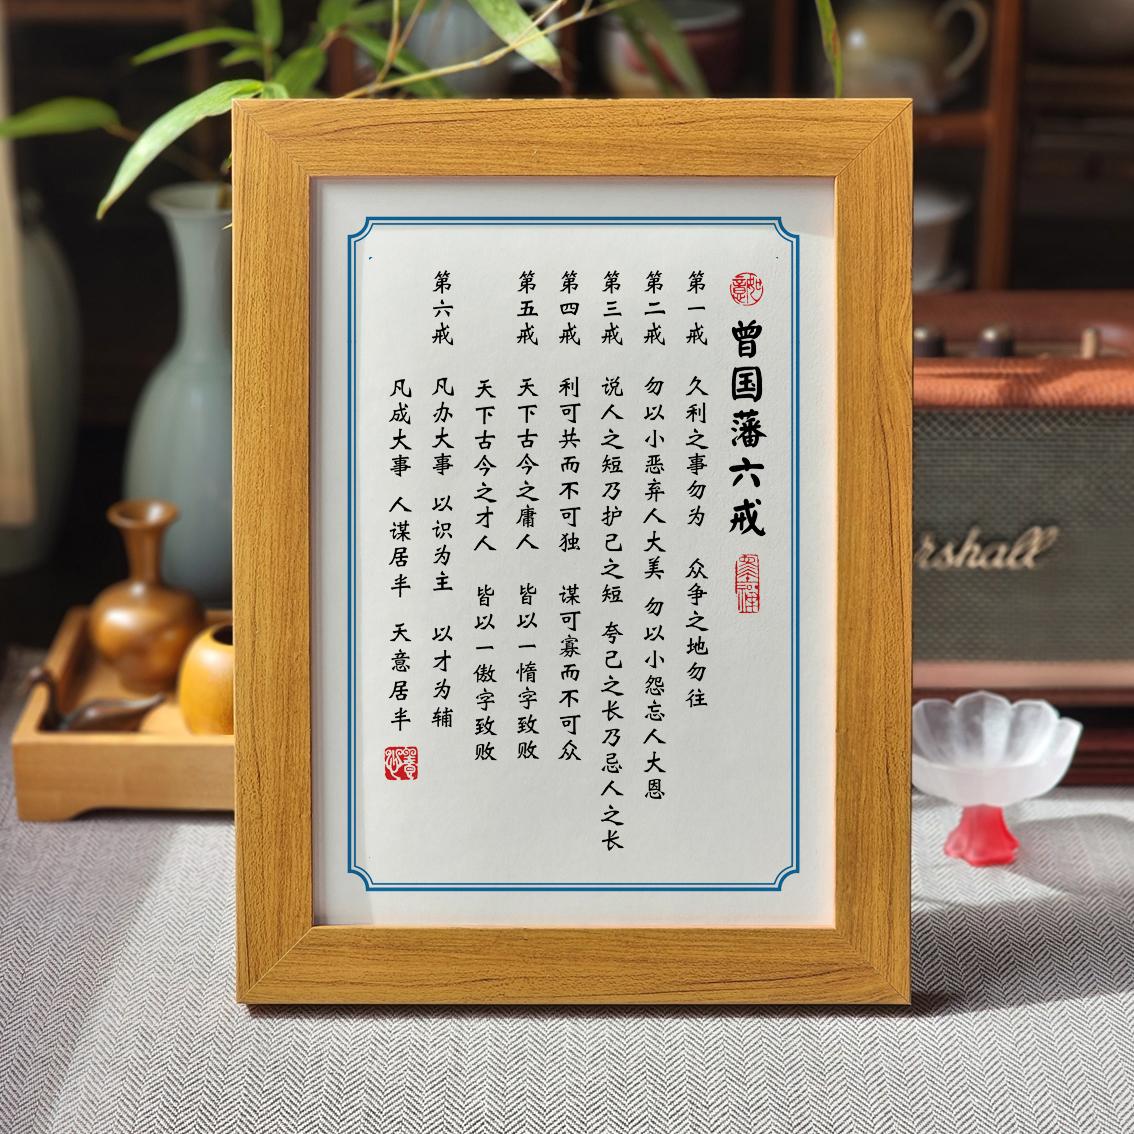 如意
曾国藩六戒
第一戒 久利之事勿为 众争之地勿往
第二戒 勿以小恶弃人大美 勿以小怨忘人大恩
第三戒 说人之短乃护己之短 夸己之长乃忌人之长
第四戒 利可共而不可独 谋可寡而不可众
第五戒 天下古今之庸人 皆以一惰字致败
天下古今之才人 皆以一傲字致败
第六戒 凡办大事 以识为主 以才为辅
凡成大事 人谋居半 天意居半
rshall